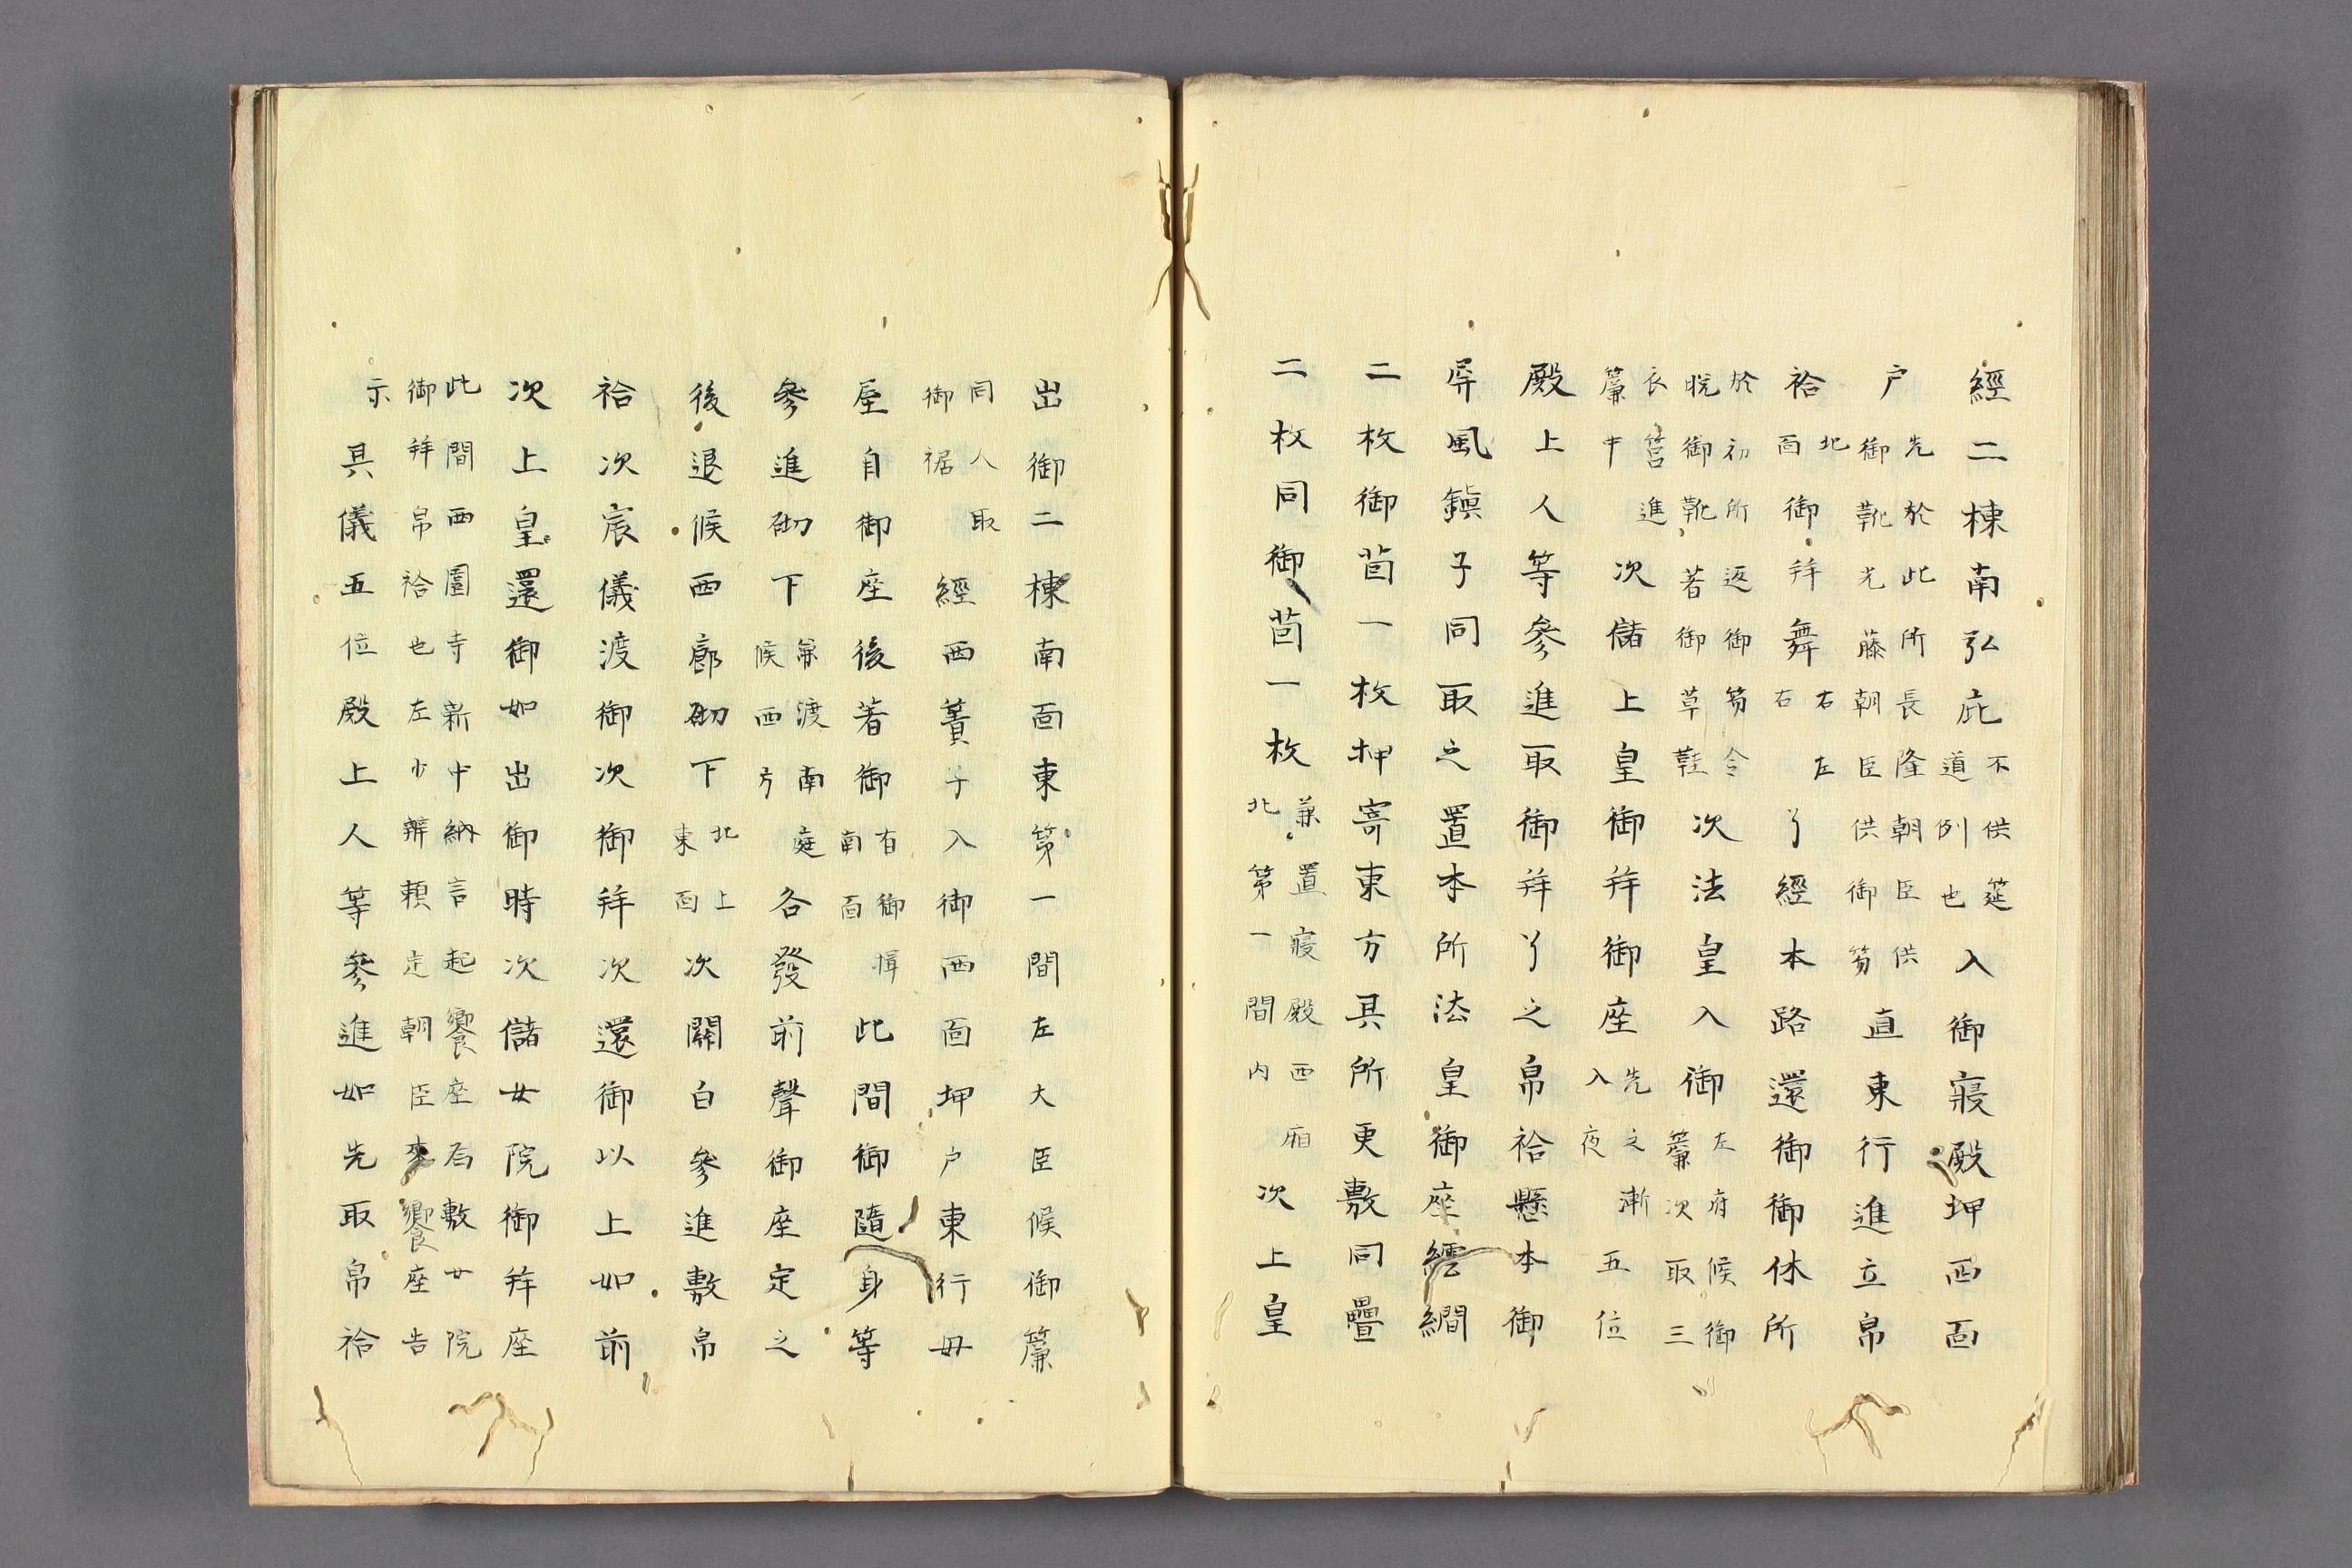 經二棟南弘庇
不供筵
道例也
入御寢殿坤西面
户
先於此所長隆朝臣供
御靴光藤朝臣供御笏
直東行進立帛
袷
北
面
御拜舞
右左
右
了經本路還御御休所
於初所返御笏令
脱御靴著御草鞋
次法皇入御
左府候御
簾次取三
衣筥進
簾中
次儲上皇御拜御座
先之漸
入夜
五位
殿上人等參進取御拜了之帛袷懸本御
屏風鎭子同取之置本所法皇御座繧繝
二枚御茵一枚押寄東方其所更敷同疊
二枚同御茵一枚
兼置寢殿西廂
北第一間内
次上皇
出御二棟南面東第一間左大臣候御簾
同人取
御裾
經西簀子入御西面坤户東行母
屋自御座後著御
有御揖
南面
此間御隨身等
參進砌下
渡南庭
候西方
各發前聲御座定之
後退候西廊砌下
北上
東面
次關白參進敷帛
袷次宸儀渡御次御拜次還御以上如前
次上皇還御如出御時次儲女院御拜座
此間西園寺新中納言起饗座后敷女院
御拜帛袷也左少辨頼定朝臣來饗座告
示
具儀五位殿上人等參進如先取帛袷